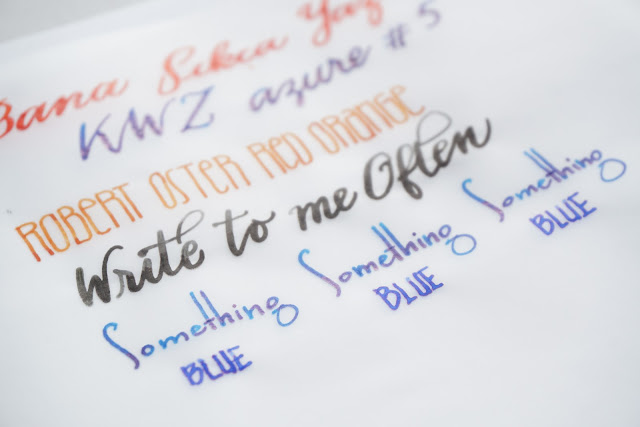 Bana Sıkça Yaz
KWZ azure #5
ROBERT OSTER RED ORANGE
Write to me Often
Something Something Something
BLUE BLUE BLUE